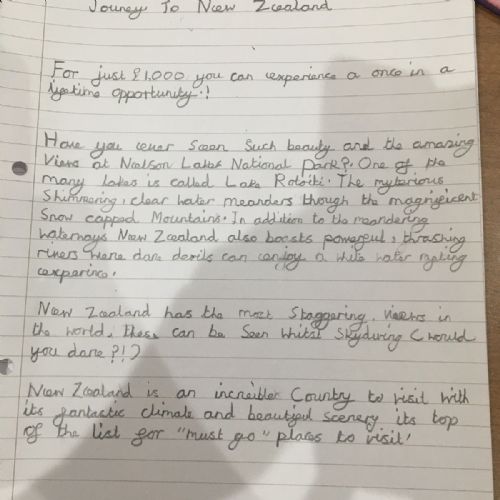 Jouney To New Zealand
For just £1,000 you can experience a once in a
lifetime opportunity.!
Have you ever Seen Such beauty and the amazing
Views at Neelson Lakes National Park?. One of the
many lakes is called Lake Rotoiti. The mysterious
Shimmering, clear water meanders though the magnificent
Snow capped Mountains. In addition to the meandering
waterways New Zealand also boasts powerful, thrashing
rivers were dare devils can enjoy a white water rafting
experince.
New Zealand has the most Staggering views in
the world, these can be Seen whilst Skydiving (would
you dare?!)
New Zealand is an increible Country to visit with
its fantactic climate and beautiful scenery its top
of the list for "must go" places to visit!